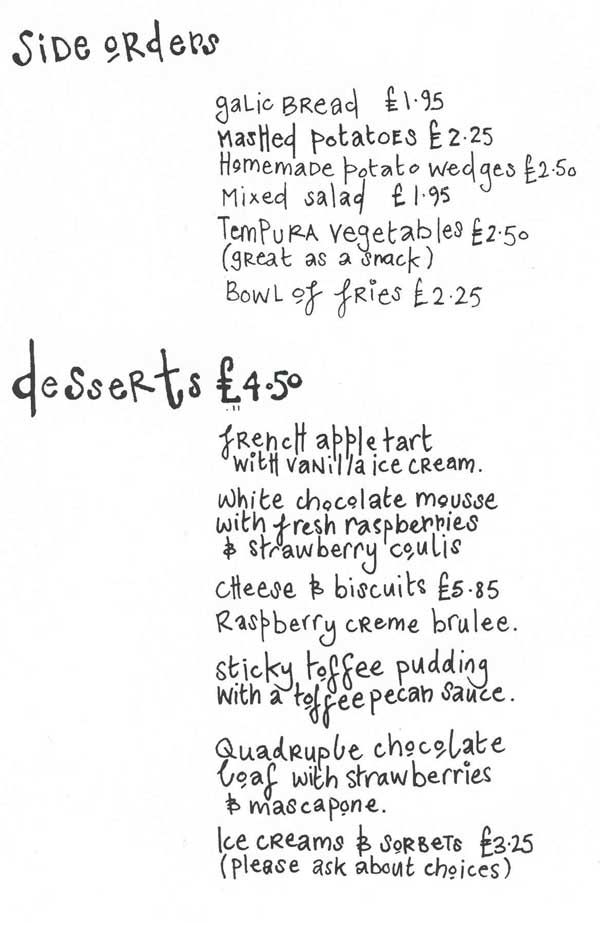 Side orders
galic Bread £1.95
Mashed potatoes £2.25
Homemade potato wedges £2.50
Mixed salad £1.95
Tempura vegetables £2.50
(great as a snack)
Bowl of fries £2.25
desserts £4.50
french apple tart
with vanilla ice cream.
white chocolate mousse
with fresh raspberries
& strawberry coulis
cheese & biscuits £5.85
Raspberry creme brulee.
sticky toffee pudding
with a toffee pecan sauce.
Quadruple chocolate
loaf with strawberries
& mascapone.
Ice creams & sorbets £3.25
(please ask about choices)